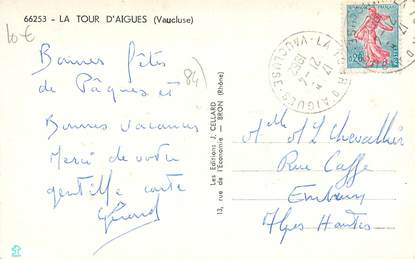 66253 - LA TOUR D'AIGUES (Vaucluse)
10 €
Bonnes fêtes
de Pâques et
84)
Bonnes vacances
Merci de votre
gentille carte
Gérard
Les Editions J. CELLARD
13, rue de l'Economie — BRON (Rhône)
LA TOUR D'AIGUES
VAUCLUSE
0,26
Mlle M L Chevallier
Rue Caffe
Embrun
Alpes Hautes